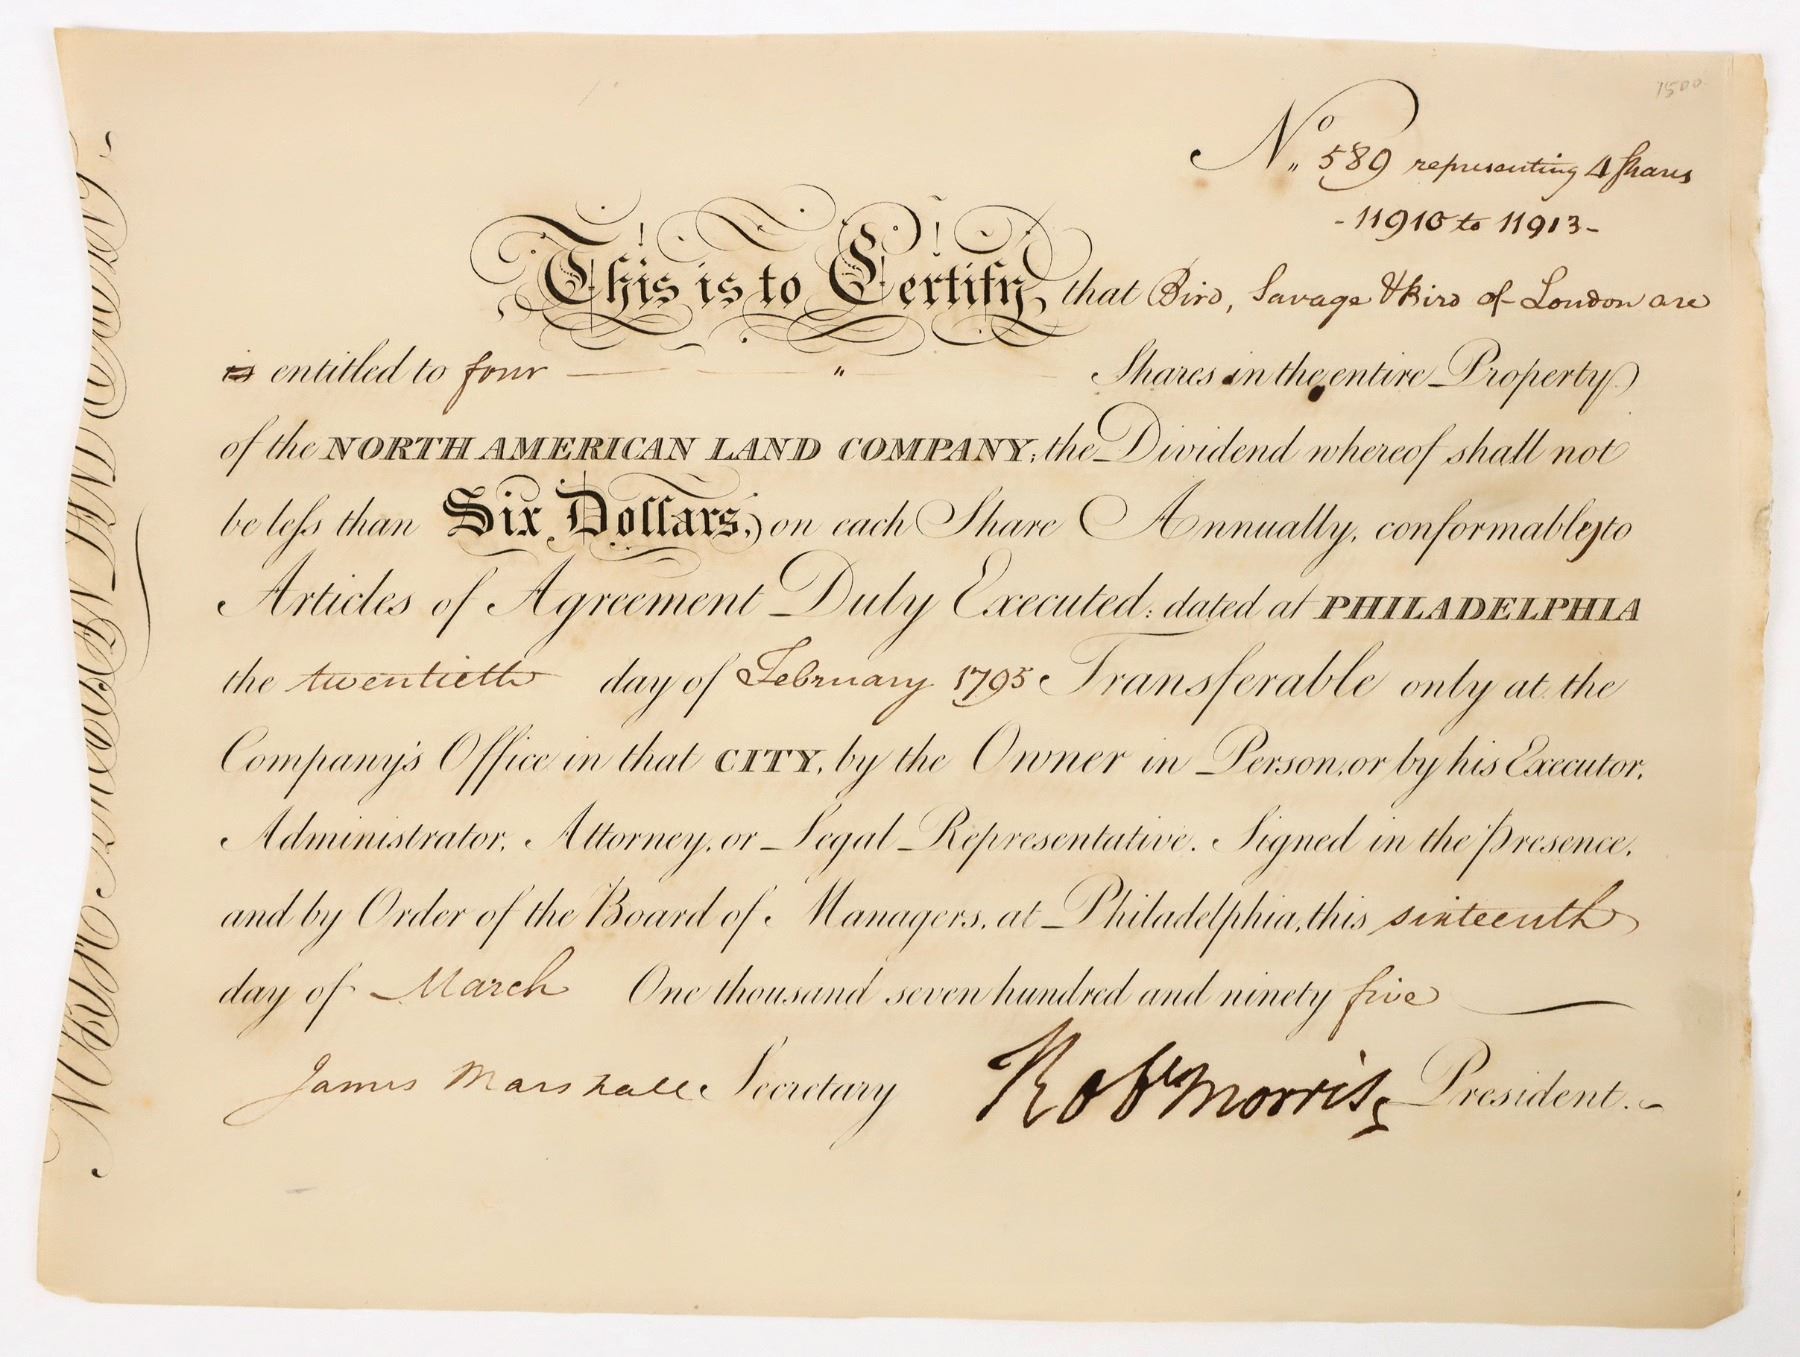 1500
No. 589 representing 4 Shares
- 11910 to 11913 -
This is to Certify, that Bird, Savage & Bird of London are
is entitled to four — " — Shares in the entire Property
of the NORTH AMERICAN LAND COMPANY; the Dividend whereof shall not
be less than Six Dollars, on each Share Annually, conformably to
Articles of Agreement Duly Executed: dated at PHILADELPHIA
the twentieth day of February 1795 Transferable only at the
Company's Office in that CITY, by the Owner in Person, or by his Executor,
Administrator, Attorney, or Legal Representative. Signed in the presence,
and by Order of the Board of Managers, at Philadelphia, this sixteenth
day of March One thousand seven hundred and ninety five
James Marshall Secretary Robt Morris President.
NORTH AMERICAN LAND COMPANY